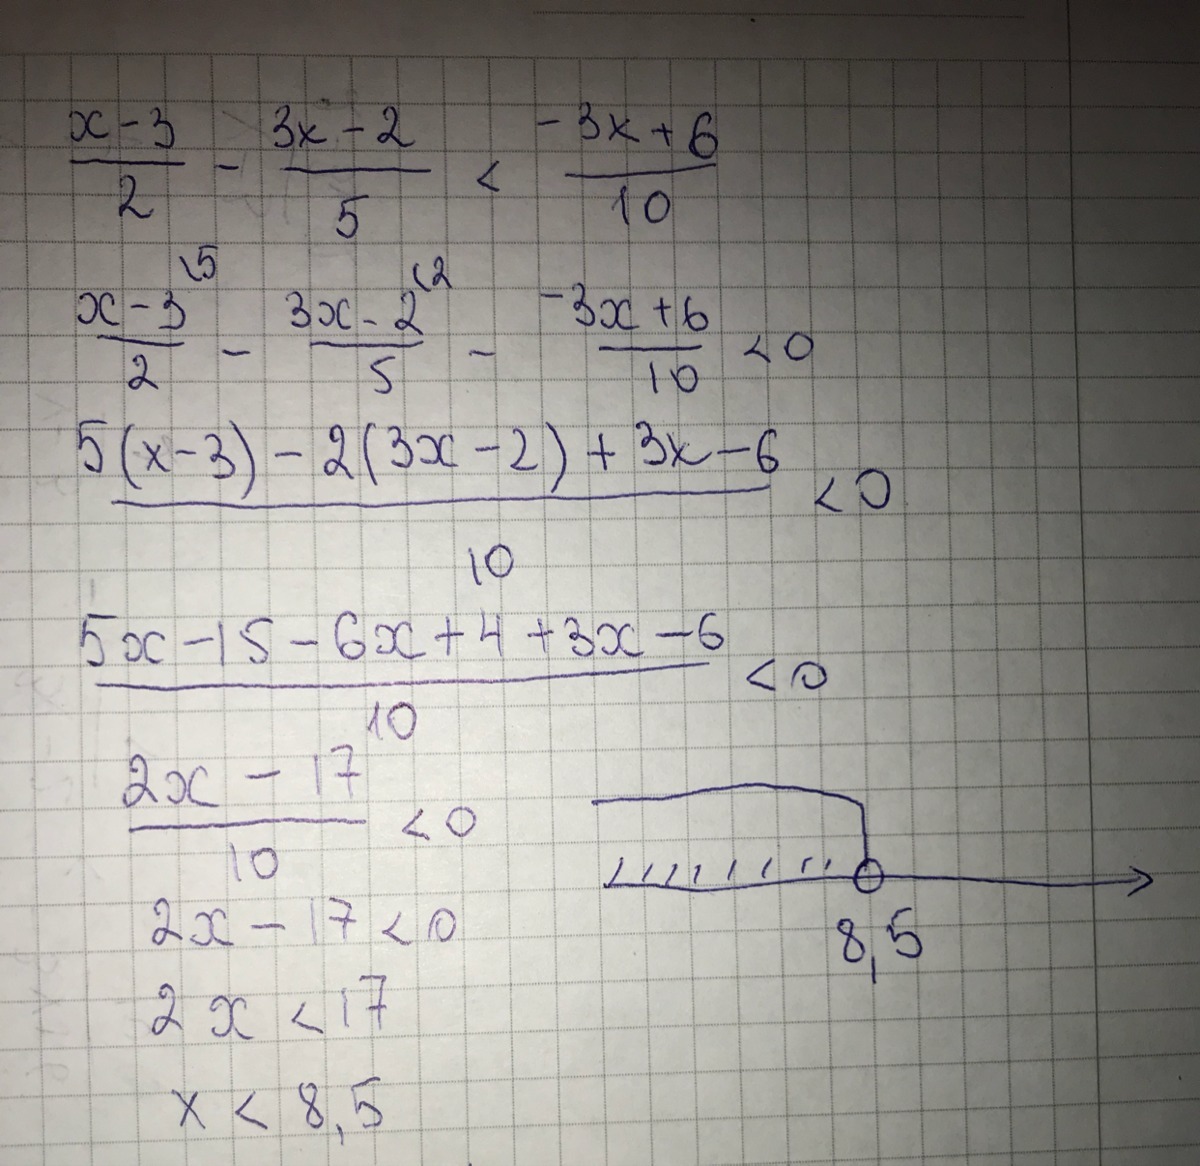 x-3/2 - 3x-2/5 < -3x+6/10
x-3\5/2 - 3x-2\2/5 - -3x+6/10 <0
5(x-3)-2(3x-2)+3x-6/10 <0
5x-15-6x+4+3x-6/10 <0
2x-17/10 <0
2x-17<0
2x<17
x<8,5
8,5